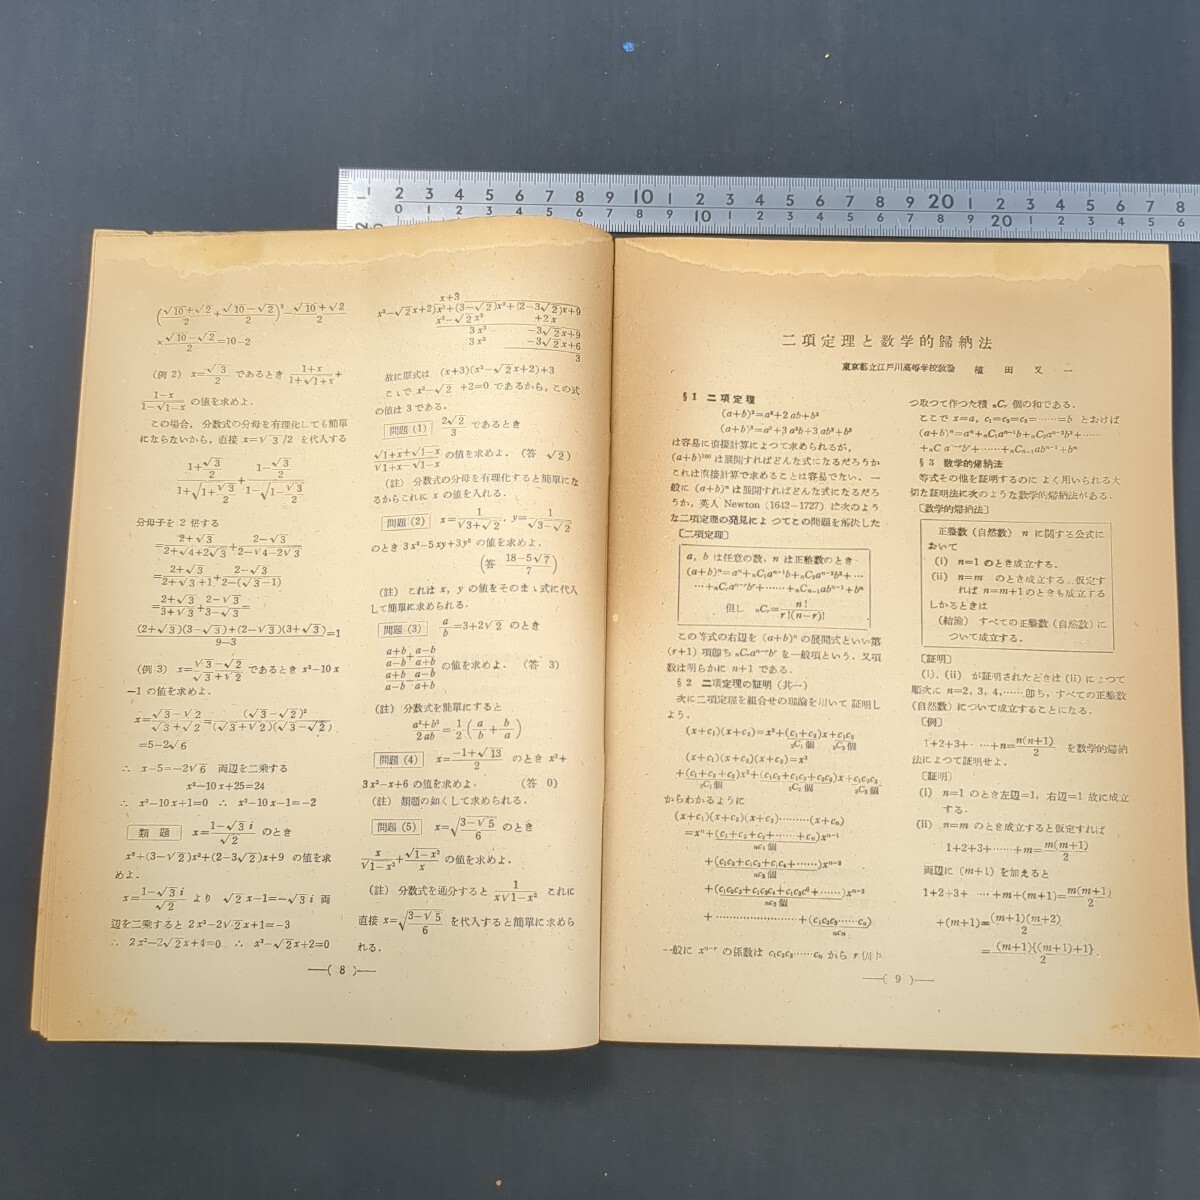 1 2 3 4 5 6 7 8 9 10 1 2 3 4 5 6 7 8 9 20 1 2 3 4 5 6 7 8
0 1 2 3 4 5 6 7 8 9 10 1 2 3 4 5 6 7 8 9 20 1 2 3 4 5 6
(√10+√2/2+√10−√2/2)²−√10+√2/2
×√10−√2/2=10−2
(例2) x=√3/2 であるとき 1+x/1+√1+x+
1−x/1−√1−x の値を求めよ．
この場合，分数式の分母を有理化しても簡単
にならないから，直接 x=√3/2 を代入する
1+√3/2/1+√1+√3/2+1−√3/2/1−√1−√3/2
分母子を2倍する
=2+√3/2+√4+2√3+2−√3/2−√4−2√3
=2+√3/2+√3+1+2−√3/2−(√3−1)
=2+√3/3+√3+2−√3/3−√3=
(2+√3)(3−√3)+(2−√3)(3+√3)/9−3=1
(例3) x=√3−√2/√3+√2 であるとき x²−10x
−1 の値を求めよ．
x=√3−√2/√3+√2=(√3−√2)²/(√3+√2)(√3−√2)
=5−2√6
∴ x−5=−2√6 両辺を二乗する
x²−10x+25=24
∴ x²−10x+1=0 ∴ x²−10x−1=−2
類題 x=1−√3i/√2 のとき
x³+(3−√2)x²+(2−3√2)x+9 の値を求
めよ．
x=1−√3i/√2 より √2x−1=−√3i 両
辺を二乗すると 2x²−2√2x+1=−3
∴ 2x²−2√2x+4=0 ∴ x²−√2x+2=0
x+3
x²−√2x+2)x³+(3−√2)x²+(2−3√2)x+9
x³−√2x² +2x
3x² −3√2x+9
3x² −3√2x+6
3
故に原式は (x+3)(x²−√2x+2)+3
こゝで x²−√2 +2=0 であるから，この式
の値は3である．
問題(1) 2√2/3 であるとき
√1+x+√1−x/√1+x−√1−x の値を求めよ．(答 √2)
(註) 分数式の分母を有理化すると簡単にな
るからこれに x の値を入れる．
問題(2) x=1/√3+√2，y=1/√3−√2
のとき 3x²−5xy+3y² の値を求めよ．
(答 18−5√7/7)
(註) これは x，y の値をそのまゝ式に代入
して簡単に求められる．
問題(3) a/b=3+2√2 のとき
a+b/a−b+a−b/a+b/a+b/a−b−a−b/a+b の値を求めよ．(答 3)
(註) 分数式を簡単にすると
a²+b²/2ab=1/2(a/b+b/a)
問題(4) x=−1+√13/2 のとき x²+
3x²−x+6 の値を求めよ． (答 0)
(註) 類題の如くして求められる．
問題(5) x=√3−√5/6 のとき
x/√1−x²+√1−x²/x の値を求めよ．
(註) 分数式を通分すると 1/x√1−x² これに
直接 x=√3−√5/6 を代入すると簡単に求めら
れる．
—( 8 )—
二項定理と数学的歸納法
東京都立江戸川高等学校教諭 植田又一
§1 二項定理
(a+b)²=a²+2ab+b²
(a+b)³=a³+3a²b+3ab²+b³
は容易に直接計算によつて求められるが，
(a+b)¹⁰⁰ は展開すればどんな式になるだろうか
これは直接計算で求めることは容易でない．一
般に (a+b)ⁿ は展開すればどんな式になるだろ
うか，英人 Newton (1642−1727) は次のよう
な二項定理の発見によつてこの問題を解決した
〔二項定理〕
a，b は任意の数，n は正整数のとき
(a+b)ⁿ=aⁿ+nC₁aⁿ⁻¹b+nC₂aⁿ⁻²b²+…
…+nCraⁿ⁻ʳbʳ+……+nCn−1abⁿ⁻¹+bⁿ
但し nCr=n!/r!(n−r)!
この等式の右辺を (a+b)ⁿ の展開式といい第
(r+1) 項即ち nCraⁿ⁻ʳbʳ を一般項という．又項
数は明らかに n+1 である．
§2 二項定理の証明 (其一)
次に二項定理を組合せの理論を用いて証明し
よう．
(x+c₁)(x+c₂)=x²+(c₁+c₂)x+c₁c₂
₂C₁個 ₂C₂個
(x+c₁)(x+c₂)(x+c₃)=x³
+(c₁+c₂+c₃)x²+(c₁c₂+c₁c₃+c₂c₃)x+c₁c₂c₃
₃C₁個 ₃C₂個 ₃C₃個
からわかるように
(x+c₁)(x+c₂)(x+c₃)………(x+cn)
=xⁿ+(c₁+c₂+c₃+……+cn)xⁿ⁻¹
nC₁個
+(c₁c₂+c₁c₃+c₁c₄+……)xⁿ⁻²
nC₂個
+(c₁c₂c₃+c₁c₂c₄+……)xⁿ⁻³
nC₃個
+……………………+(c₁c₂c₃……cn)
nCn
一般に xⁿ⁻ʳ の係数は c₁c₂c₃……cn から r 個ず
つ取つて作つた積 nCr 個の和である．
ここで x=a，c₁=c₂=c₃=……=b とおけば
(a+b)ⁿ=aⁿ+nC₁aⁿ⁻¹b+nC₂aⁿ⁻²b²+……
+nCraⁿ⁻ʳbʳ+……+nCn−1abⁿ⁻¹+bⁿ
§3 数学的歸納法
等式その他を証明するのによく用いられる大
切な証明法に次のような数学的歸納法がある．
〔数学的歸納法〕
正整数 (自然数) n に関する公式に
おいて
(i) n=1 のとき成立する．
(ii) n=m のとき成立する．仮定す
れば n=m+1 のときも成立する
しかるときは
(結論) すべての正整数 (自然数) に
ついて成立する．
〔証明〕
(i)．(ii) が証明されたときは (ii) によつて
順次に n=2，3，4，……即ち，すべての正整数
(自然数) について成立することになる．
〔例〕
1+2+3+…+n=n(n+1)/2 を数学的歸納
法によつて証明せよ．
〔証明〕
(i) n=1 のとき左辺=1，右辺=1 故に成立
する．
(ii) n=m のとき成立すると仮定すれば
1+2+3+……+m=m(m+1)/2
両辺に (m+1) を加えると
1+2+3+ …+m+(m+1)=m(m+1)/2
+(m+1)=(m+1)(m+2)/2
=(m+1){(m+1)+1}/2．
—( 9 )—